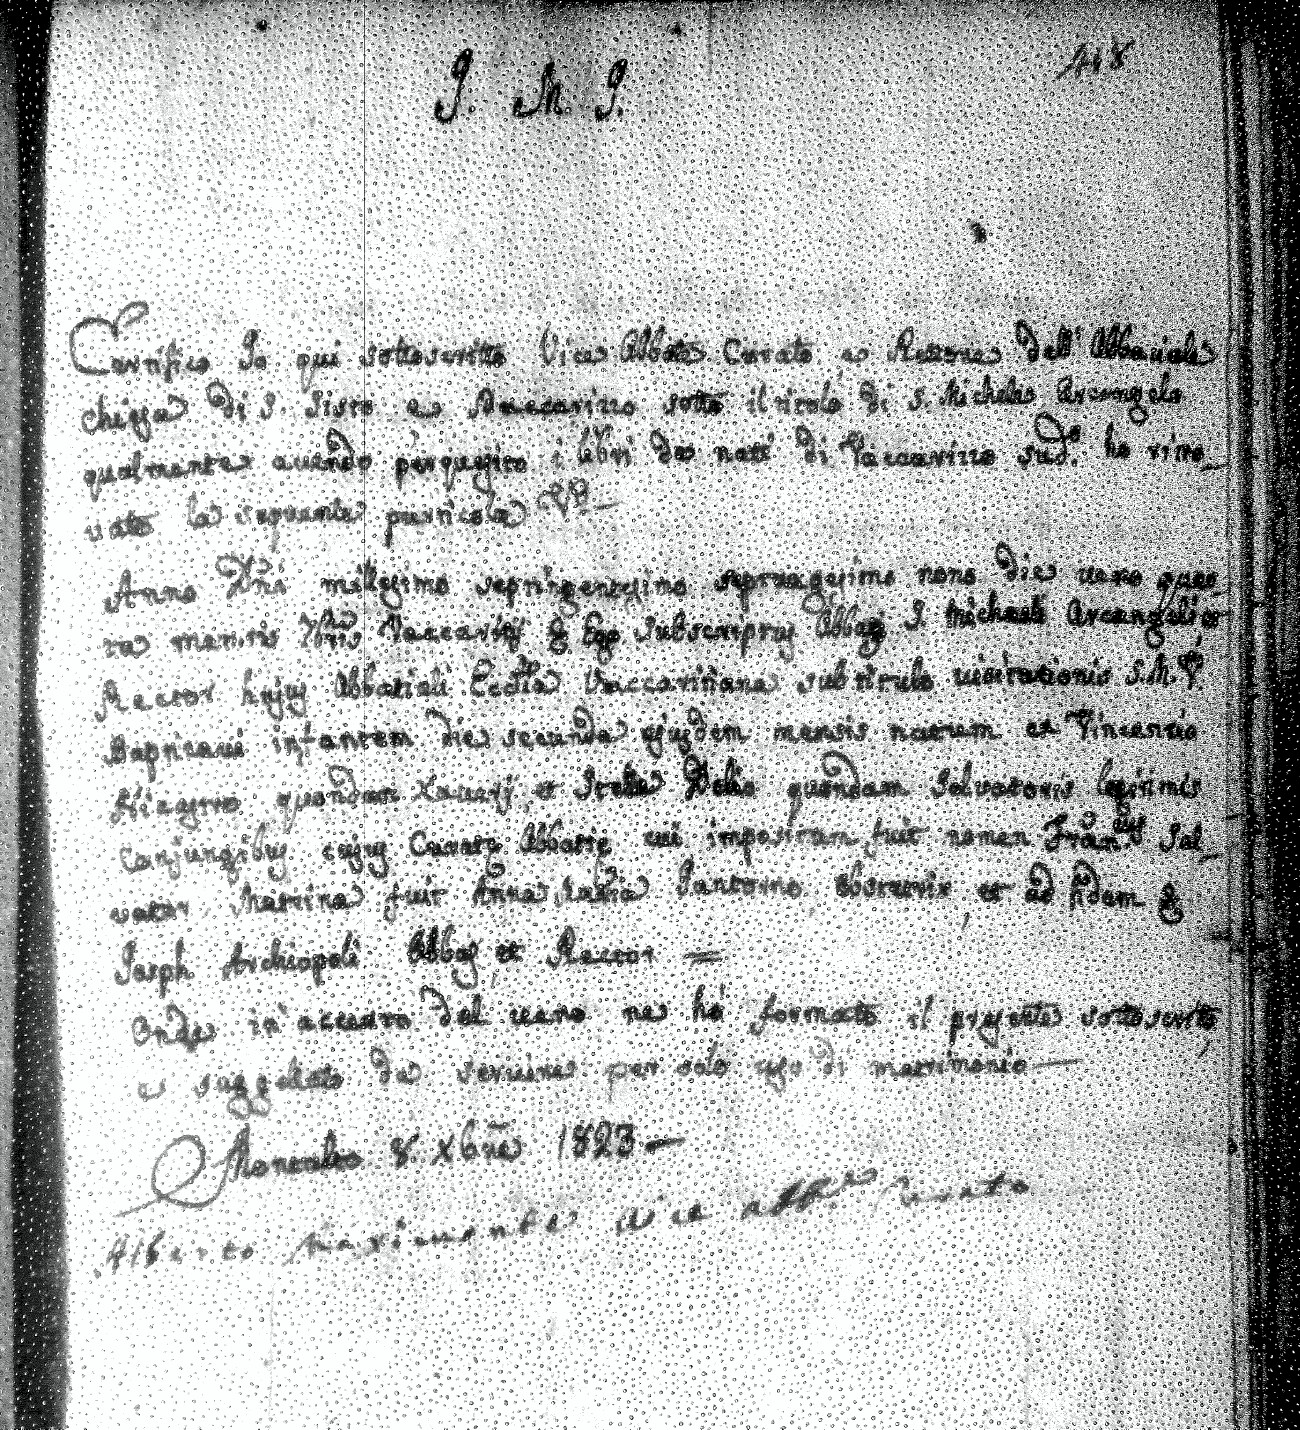 418
G. M. G.
Certifico Io qui sottoscritto Vice Abbate Curato e Rettore dell' Abbaziale
chiesa di S. Sisto e Vaccarizzo sotto il titolo di S. Michele Arcangelo
qualmente avendo perquisito i libri de nati di Vaccarizzo sud.o ho rinve_
nuto la seguente particola
Anno Dñi millesimo septingentesimo septuagesimo nono die vero quar_
ta mensis Vaccaritij Ego Subscriptus Abbas S. Michaeli Arcangeli et
Rector hujus Abbatiali Ecclie Vaccaritiane sub titulo visitationis S.M.V.
Baptizavi infantem die secunda ejusdem mensis natum ex Vincentio
quondam Xaverij, et Delio quondam Salvatoris legitimis
conjungibus hujus Curate Abbatie cui impositum fuit nomen Fran.cus Sal_
vator. Matrina fuit Anna Santorno obstetrix, et ad fidem
Joseph Archiopoli Abbas, et Rector =
Onde in accerto del vero ne hò formato il presente sottoscritto,
e suggellato da servirne per solo uso di matrimonio —
Montalto 8. Xbre 1823 —
Alberto vice abb.e Curato